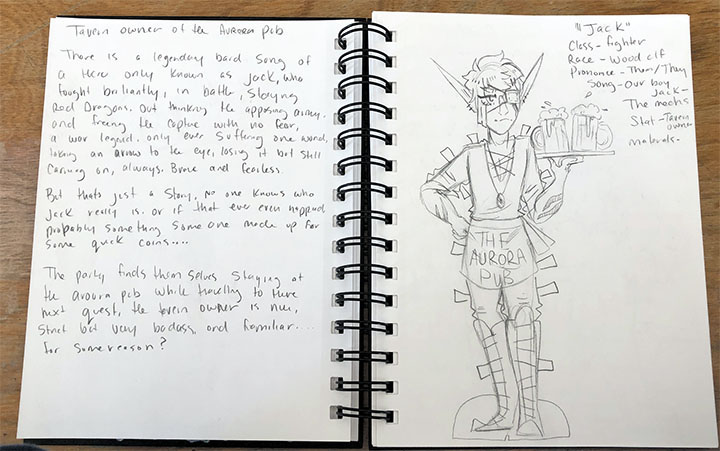 Tavein owner of the Aurora pub
There is a legendary bard song of
a Hero only known as jack, who
fought brilliantly, in battle, Slaying
Red Dragons, Out thinking the opposing army.
and freeing the captive with no fear,
a war legend. only ever suffering one wond,
taking an arrow to the eye, losing it but still
carrying on, always. Brave and fearless.
But thats just a story, no one knows who
jack really is. or if that ever even happend
probably something some one made up for
some quick coins....
The party finds them selves staying at
the arora pub while traveling to there
next quest, the tavein owner is nice,
strict but very badass, and familiar....
for some reason?
"Jack"
Class - fighter
Race - wood elf
Pronounce - Them/They
Song - Our boy
Jack -
The mechs
Stat - Tavein
owner
materals -
THE
AURORA
PUB